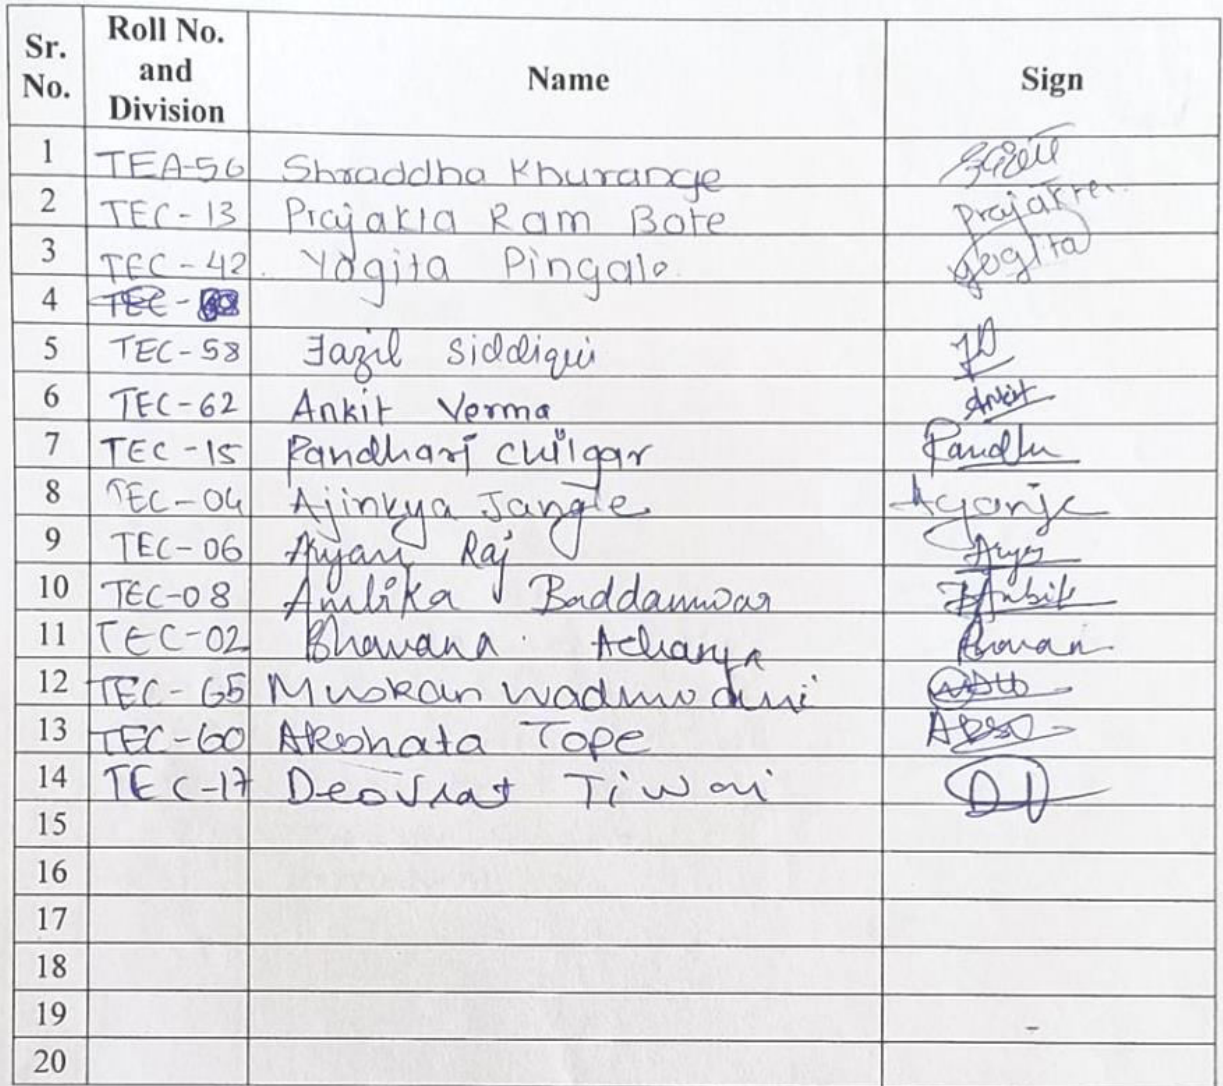 Sr. No. Roll No. and Division Name Sign
1 TEA-56 Shraddha Khurange
2 TEC-13 Prajakta Ram Bote Prajakta
3 TEC-42. Yogita Pingale. Yogita
4
5 TEC-58 Fazil Siddiqui
6 TEC-62 Ankit Verma Ankit
7 TEC-15 Pandhari Chilgar Pandhu
8 TEC-04 Ajinkya Jangle
9 TEC-06 Aryan Raj
10 TEC-08 Ambika Baddamwar
11 TEC-02 Bhavana Acharya
12 TEC-65 Muskan
13 TEC-60 Akshata Tope
14 TEC-17 Deovrat Tiwari
15
16
17
18
19
20